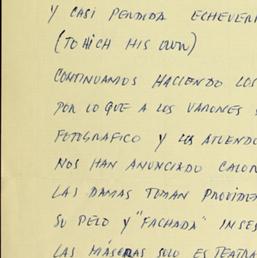 Y CASI PERDIDA ECHEVERR
(TO HICH HIS OWN)
CONTINUAMOS HACIENDO LOS
POR LO QUE A LOS VARONES
FOTOGRAFICO Y LOS ATUENDO
NOS HAN ANUNCIADO CALOR
LAS DAMAS TOMAN PROVIDEN
SU PELO Y "FACHADA"
LAS MÁSCARAS SOLO ES TEATRA